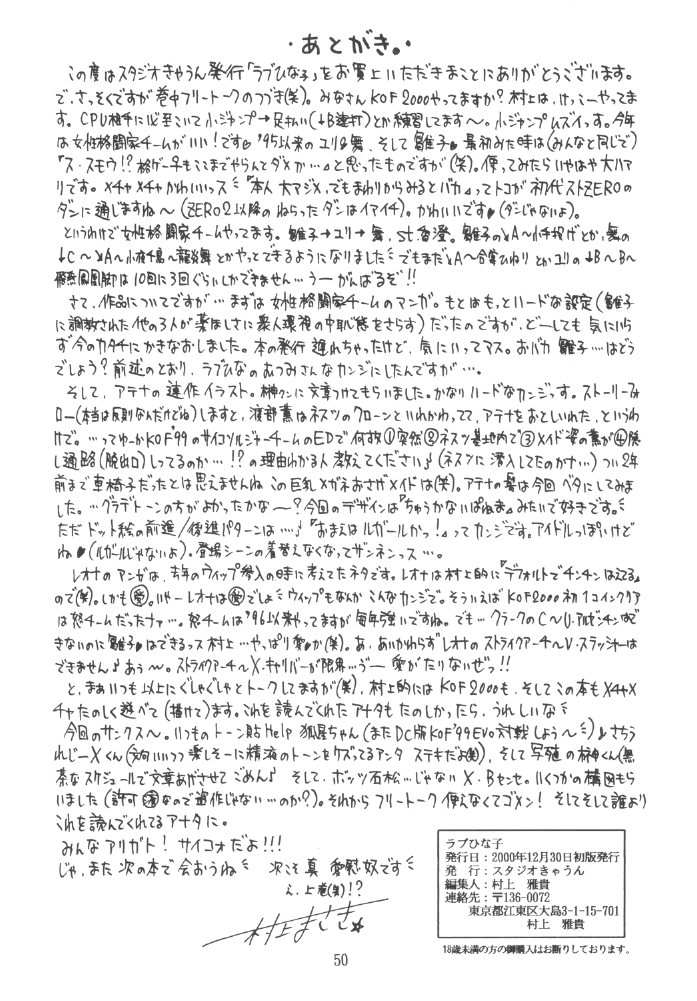 ・あとがき。・
この度はスタジオきゃうん発行「ラブひな子」をお買上いただきまことにありがとうございます。
で、さっそくですが巻中フリートークのつづき(笑)。みなさんKOF2000やってますか?村上は、けっこーやってま
す。CPU相手に 小ジャンプ→足払い(↓B連打)とか練習してます〜。小ジャンプムズイっす。今年
は女性格闘家チームがいい!です♥'95以来のユリ&舞、そして雛子♥最初みた時は(みんなと同じで)
『ス・スモウ!?格ゲー子もここまでやらんとダメか…』と思ったものですが(笑)。使ってみたらいやはや大ハア
リです。メチャメチャかわいいっス 『本人大マジメ、でもまわりからみるとバカ』ってトコが初代ストZEROの
ダンに通じますね〜(ZERO2以降のねらったダンはイマイチ)。かわいいです♥(ダンじゃないよ)。
というわけで女性格闘家チームやってます。雛子→ユリ→舞、st.香澄。雛子の A〜小手投げとか、舞の
↓C〜 A〜小夜千鳥〜龍炎舞とかやっとできるようになりました でもまだ A〜合掌ひねりとかユリの↓B〜B〜
飛燕鳳凰脚は10回に3回ぐらいしかできません…うーがんばるぞ!!
さて、作品についてですが…まずは女性格闘家チームのマンガ。もとはもっとハードな設定(雛子
に調教された他の3人が薬ほしさに衆人環視の中恥態をさらす)だったのですが、どーしても気にいら
ず今のカタチにかきなおしました。本の発行遅れちゃったけど、気にいってマス。おバカ雛子…はどう
でしょう?前述のとおり、ラブひなのあつみさんなカンジにしたんですが…。
そして、アテナの連作イラスト。榊クンに文章つけてもらいました。かなりハードなカンジっす。ストーリーフォ
ロー(本当は反則なんだけどね)しますと、渡部薫はネスツのクローンといれかわってて、アテナをおとしいれた、というわ
けで。…ってゆーかKOF'99のサイコソルジャーチームのEDで何故①突然②ネスツ基地内で③メイド姿の薫が④脱
し通路(脱出口)しってるのか…!?の理由わかる人教えてください♪(ネスツに潜入してたのかナ…)つい2年
前まで車椅子だったとは思えませんね この巨乳メガネおさげメイドは(笑)。アテナの髪は今回ベタにしてみま
した。…グラデトーンの方がよかったかな〜?今回のデザインは『ちゅうかないぱねま』みたいで好きです。
ただドット絵の前進/後進パターンは…♪『おまえはルガールかっ!』ってカンジです。アイドルっぽいけど
ね♥(ルガールじゃないよ)。登場シーンの着替えなくなってザンネンっス…。
レオナのマンガは、去年のウィップ参入の時に考えてたネタです。レオナは村上的に『デフォルトでチンチンはえてる』
ので(笑)。しかも 。いやーレオナは でしょ ウィップもなんかこんなカンジで。そういえばKOF2000初1コインクリア
は怒チームだったナァ…。怒チームは'96以来やってますが毎年強いですね。でも…クラークのC〜U・アルゼンチンはで
きないのに雛子♥はできるっス村上…やっぱり愛♥か(笑)。あ、あいかわらずレオナのストライクアーチ〜V・スラッシャーは
できません♪あぅ〜。ストライクアーチ〜X・キャリバーが限界…う゛ー愛がたりないぜっ!!
と、まぁいつも以上にぐしゃぐしゃとトークしてますが(笑)、村上的にはKOF2000も、そしてこの本もメチャメ
チャたのしく遊べて(描けて)ます。これを読んでくれたアナタもたのしかったら、うれしいな
今回のサンクス〜。いつものトーン貼Help 狐呂ちゃん(またDC版KOF'99Evo対戦しよう〜 )♪さちう
れじーXくん(文句いいつつ楽しそーに精液のトーンをケズッてるアンタ ステキだよ(笑))、そして写植の榊クン(無
茶なスケジュールで文章あげさせてごめん♪ そして、ポッツ石松…じゃないX・Bセンセ。いくつかの構図もら
いました(許可済なので盗作じゃない…のか?)。それからフリートーク使えなくてゴメン!そしてそして誰より
これを読んでくれてるアナタに。
みんなアリガト!サイコォだよ!!!
じゃ、また次の本で会おうね 次こそ真 愛慰奴です
え、上巻(笑)!?
村上まさき☆
ラブひな子
発行日:2000年12月30日初版発行
発 行:スタジオきゃうん
編集人:村上 雅貴
連絡先:〒136-0072
東京都江東区大島3-1-15-701
村上 雅貴
18歳未満の方の御購入はお断りしております。
50